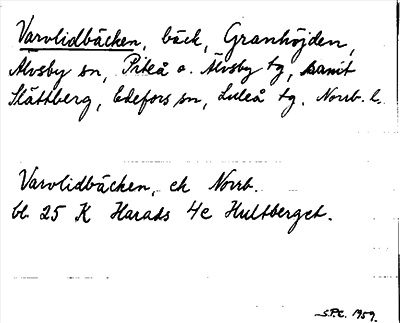 Varvlidbäcken, bäck, Granhöjden,
Älvsby sn, Piteå o. Älvsby tg, samt
Slättberg, Edefors sn, Luleå tg. Norrb. l.
Varvlidbäcken, ek Norrb.
bl. 25 K Harads 4e Hultberget.
S.P.C. 1959.